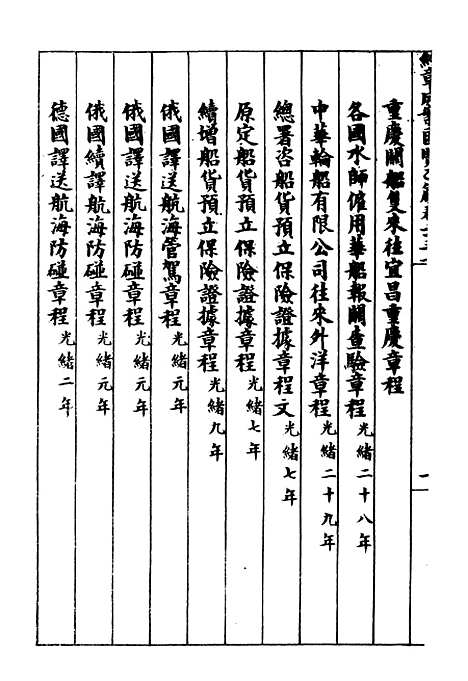 重慶關船隻來往宜昌重慶章程
各國水師僱用華船報關查驗章程光緒二十八年
中華輪船有限公司往來外洋章程光緒二十九年
總署咨船貨預立保險證據章程文光緒七年
原定船貨預立保險證據章程光緒七年
續增船貨預立保險證據章程光緒九年
俄國譯送航海管駕章程光緒元年
俄國譯送航海防碰章程光緒元年
俄國續譯航海防碰章程光緒元年
德國譯送航海防碰章程光緒二年